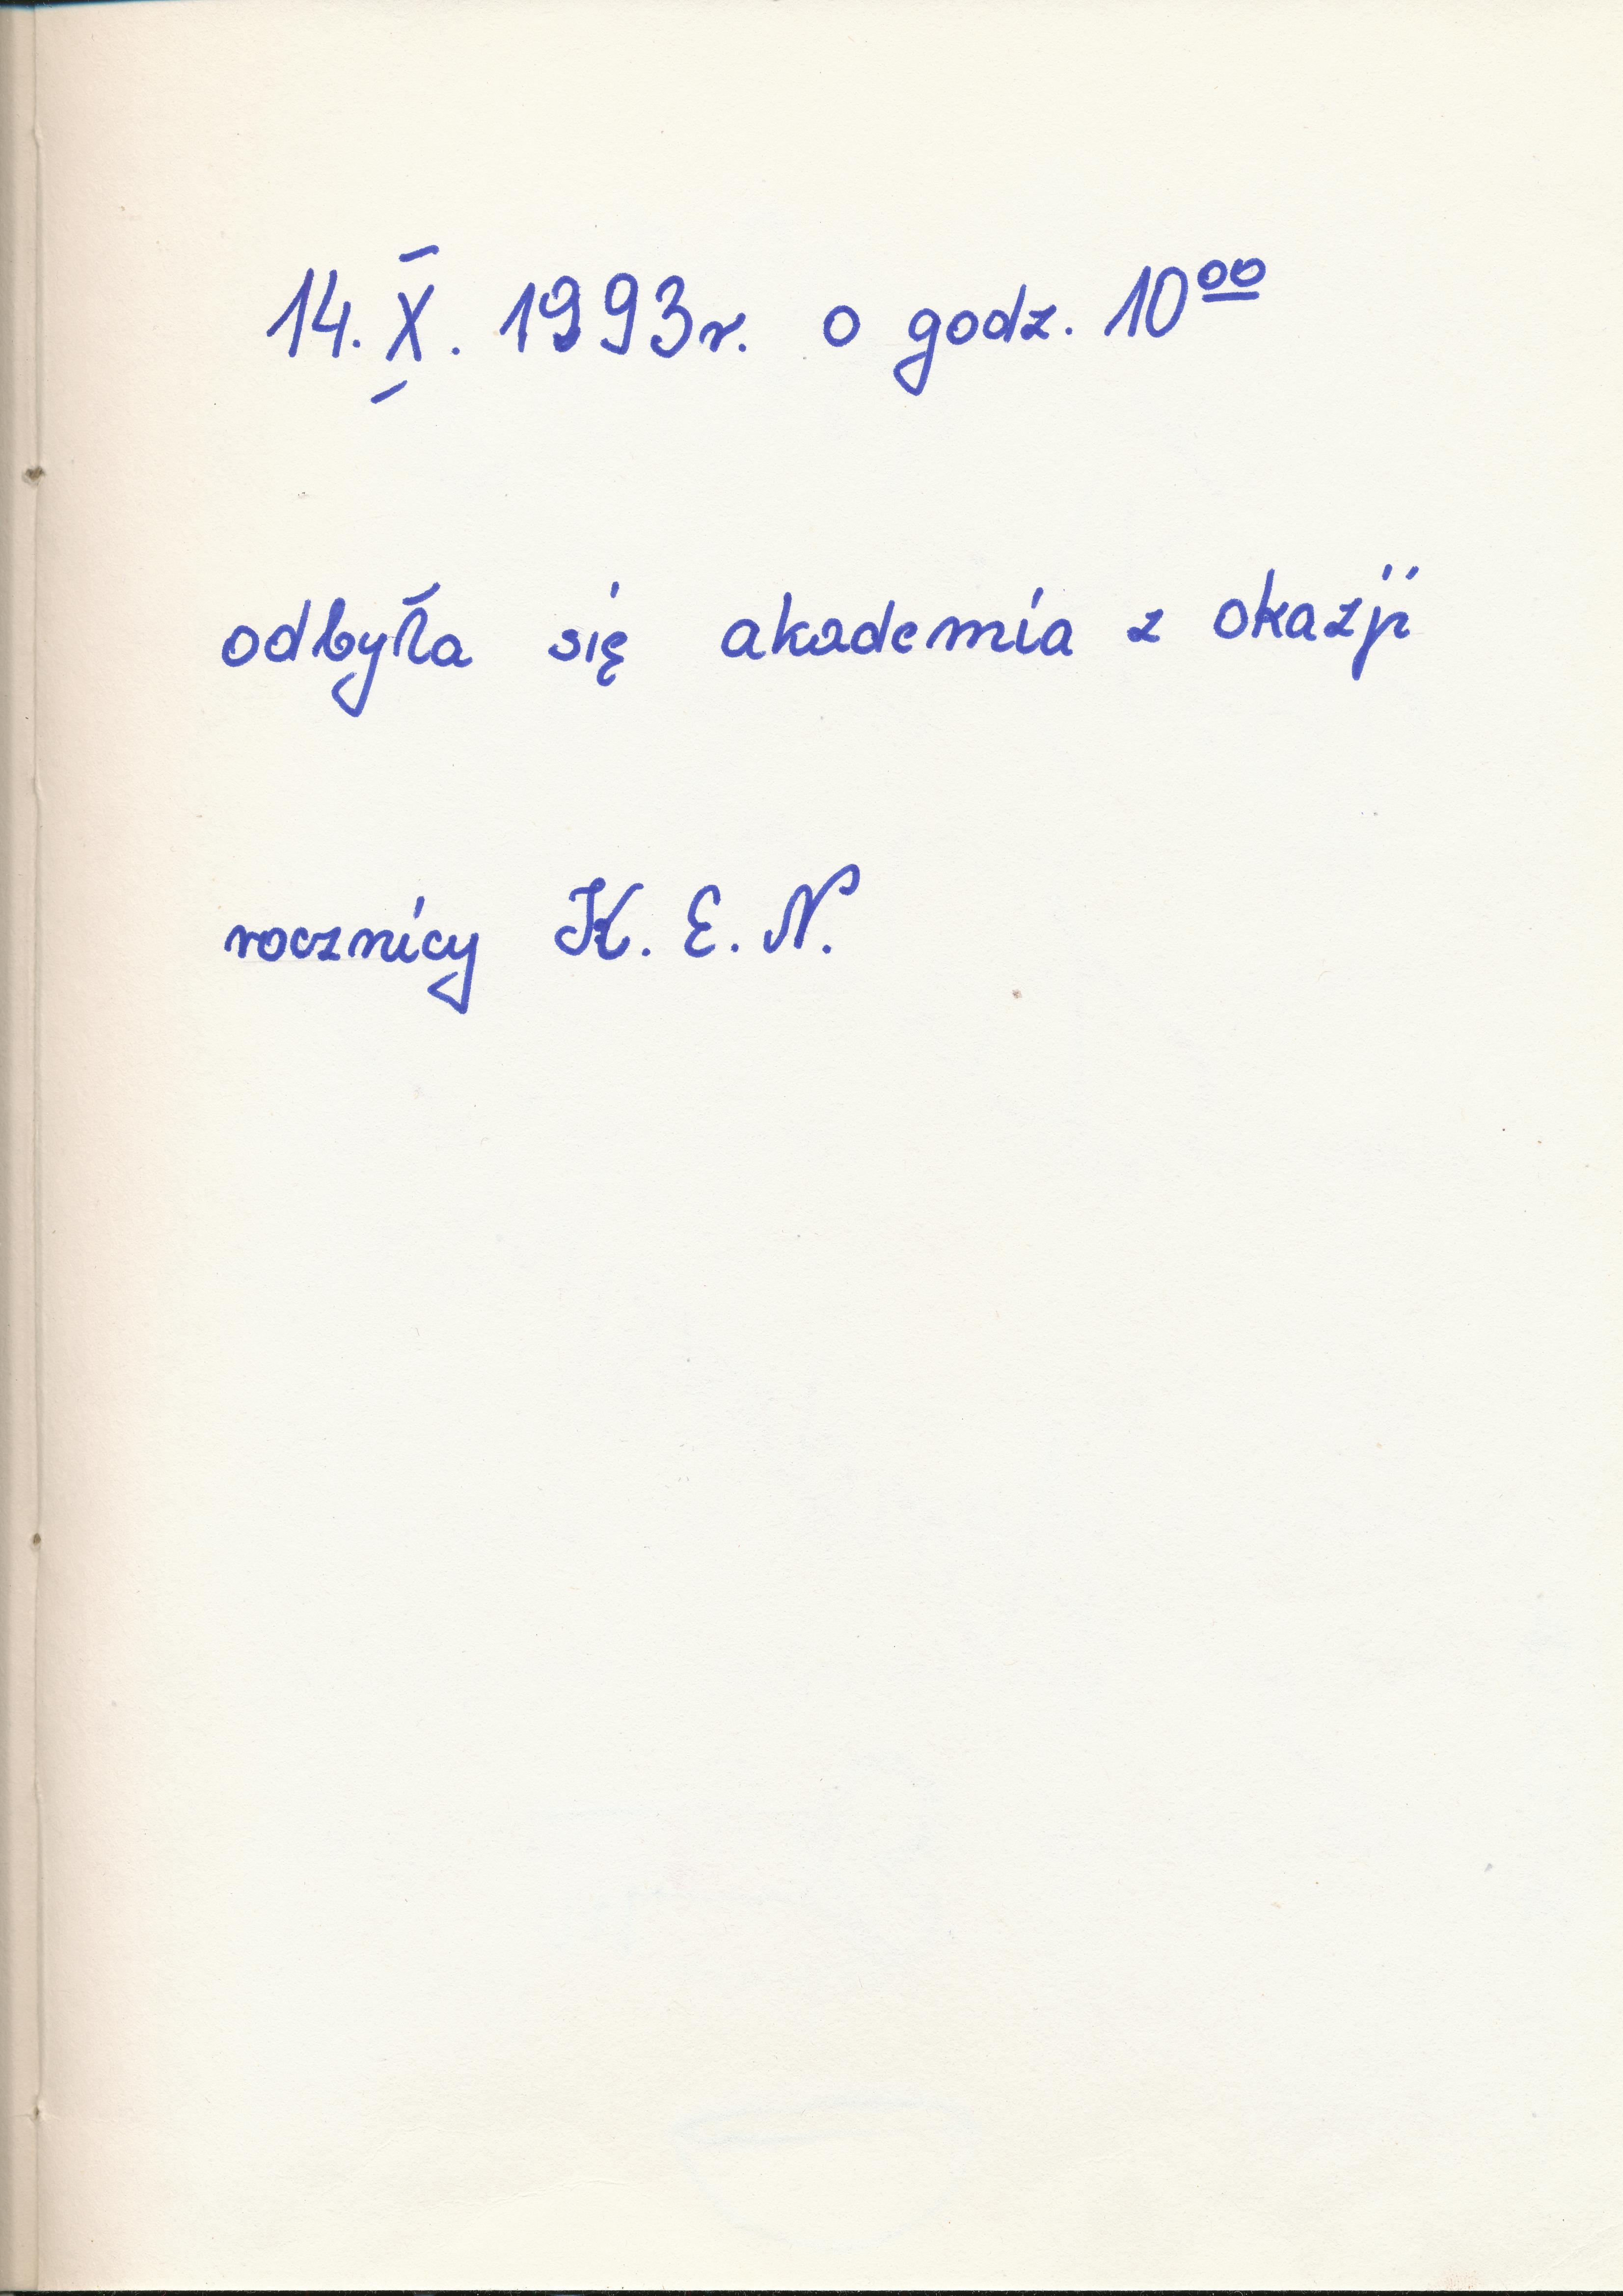 14. X. 1993r. o godz. 10⁰⁰
odbyła się akademia z okazji
rocznicy K. E. N.